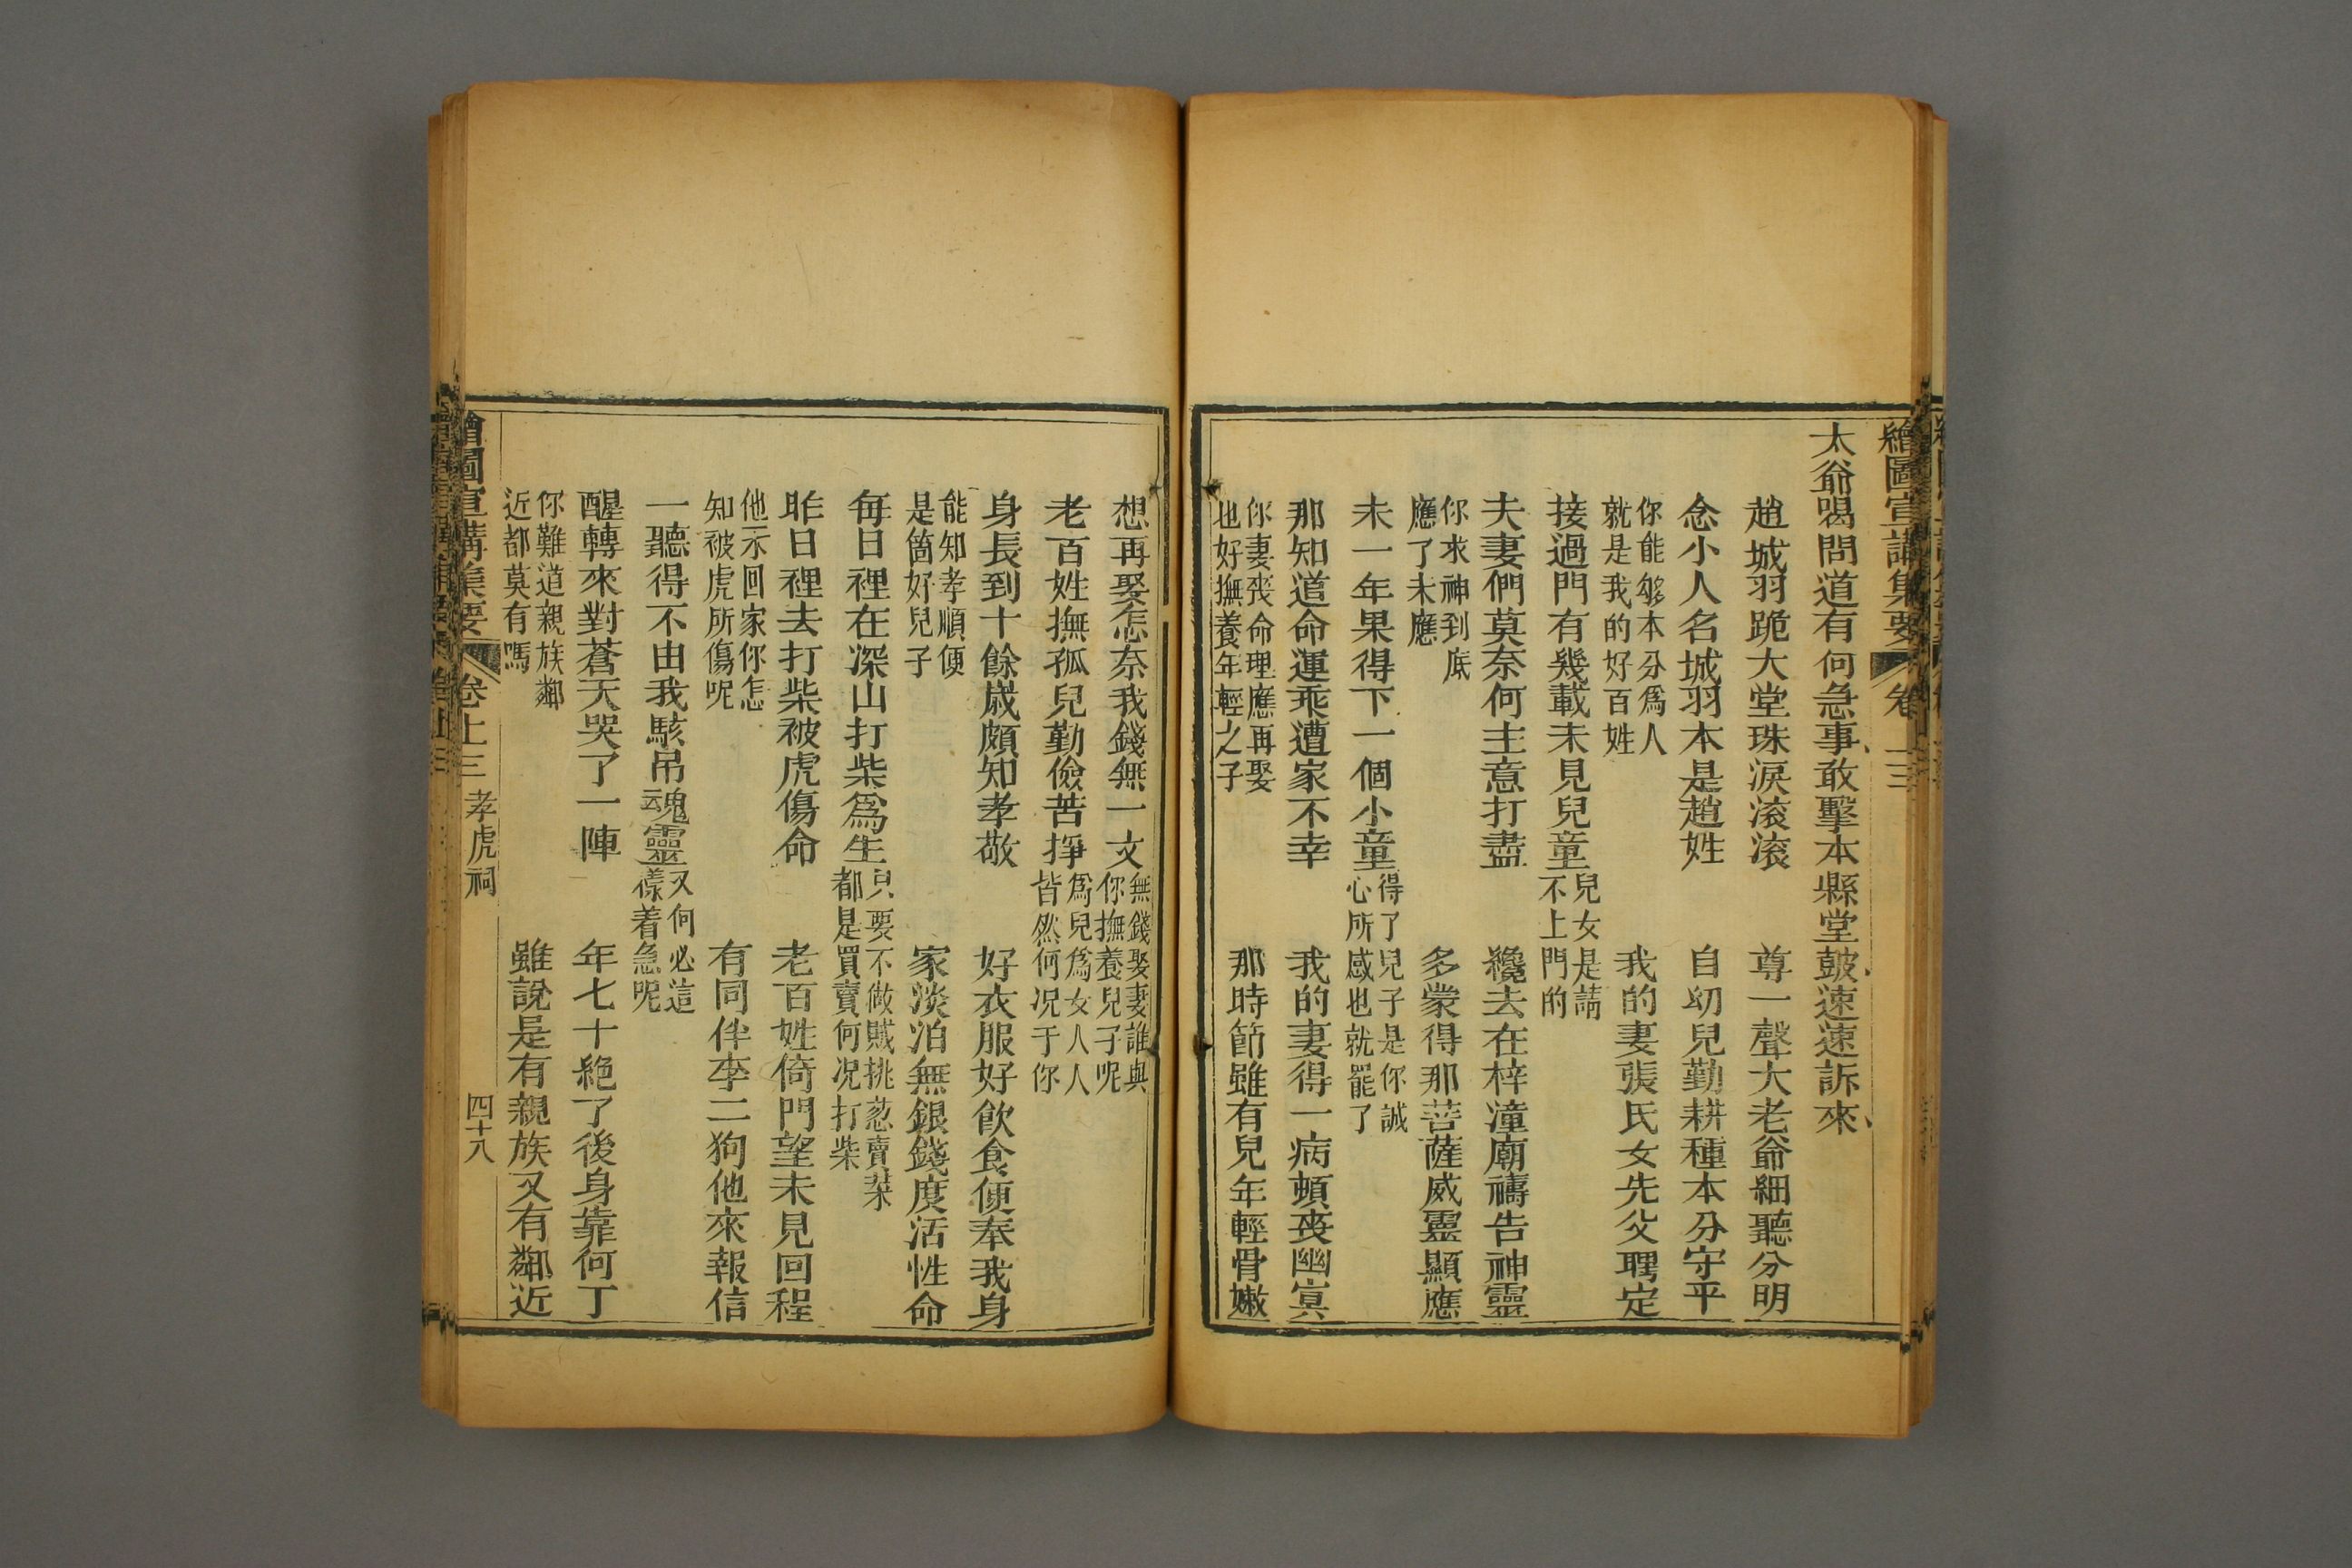 繪圖宣講集要 卷
太爺喝問道有何急事敢擊本縣堂鼓速速訴來
趙城羽跪大堂珠淚滚滚 尊一聲大老爺細聽分明
念小人名城羽本是趙姓 自幼兒勤耕種本分守平
你能够本分爲人
就是我的好百姓
我的妻張氏女先父聘定
接過門有幾載未見兒童
兒女是請
不上門的
夫妻們莫奈何主意打盡 纔去在梓潼廟禱告神靈
你求神到底
應了未應
多蒙得那菩薩威靈顯應
未一年果得下一個小童
得了兒子是你誠
心所感也就罷了
那知道命運乖遭家不幸 我的妻得一病頓喪幽冥
你妻喪命理應再娶
也好撫養年輕之子
那時節雖有兒年輕骨嫩
想再娶怎奈我錢無一文
無錢娶妻誰與
你撫養兒子呢
老百姓撫孤兒勤儉苦掙
爲兒爲女人人
皆然何况于你
身長到十餘歲頗知孝敬 好衣服好飲食便奉我身
能知孝順便
是箇好兒子
家淡泊無銀錢度活性命
每日裡在深山打柴爲生
只要不做賊挑葱賣菜
都是買賣何况打柴
昨日裡去打柴被虎傷命 老百姓倚門望未見回程
他不回家你怎
知被虎所傷呢
有同伴李二狗他來報信
一聽得不由我駭吊魂靈
又何必這
樣着急呢
醒轉來對蒼天哭了一陣 年七十絕了後身靠何丁
你難道親族鄰
近都莫有嗎
雖說是有親族又有鄰近
繪圖宣講集要 卷上三 孝虎祠 四十八